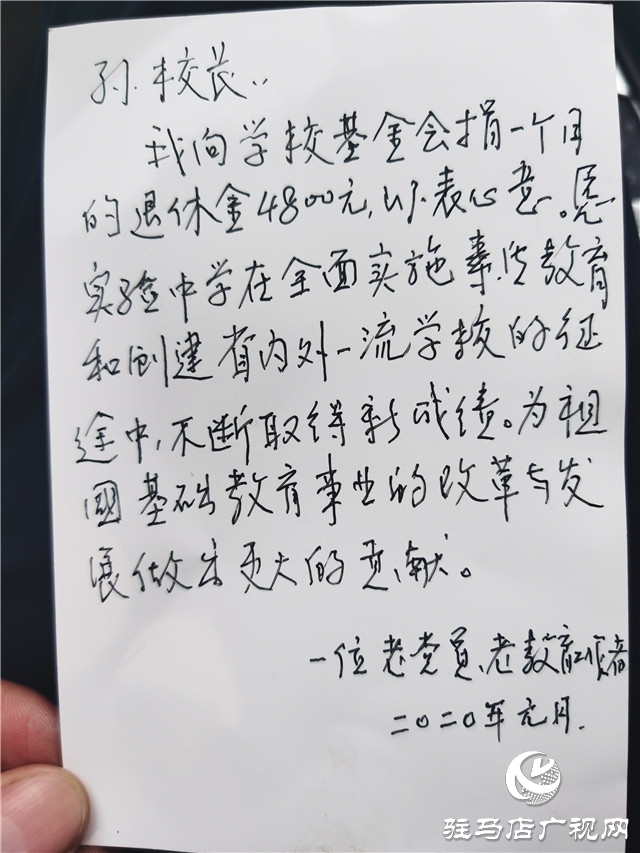 孙校长:
我向学校基金会捐一个月
的退休金4800元,以表心意。愿
实验中学在全面实施素质教育
和创建省内外一流学校的征
途中,不断取得新成绩。为祖
国基础教育事业的改革与发
展做出更大的贡献。
一位老党员、老教育工作者
二〇二〇年元月.
驻马店广视网